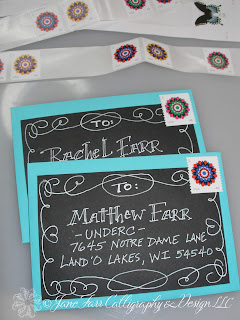 TO:
RACHEL FARR
TO:
MATTHEW FARR
-UNDERC-
7645 NOTRE DAME LANE
LAND'O LAKES, WI 54540
Jane Farr Calligraphy & Design LLC